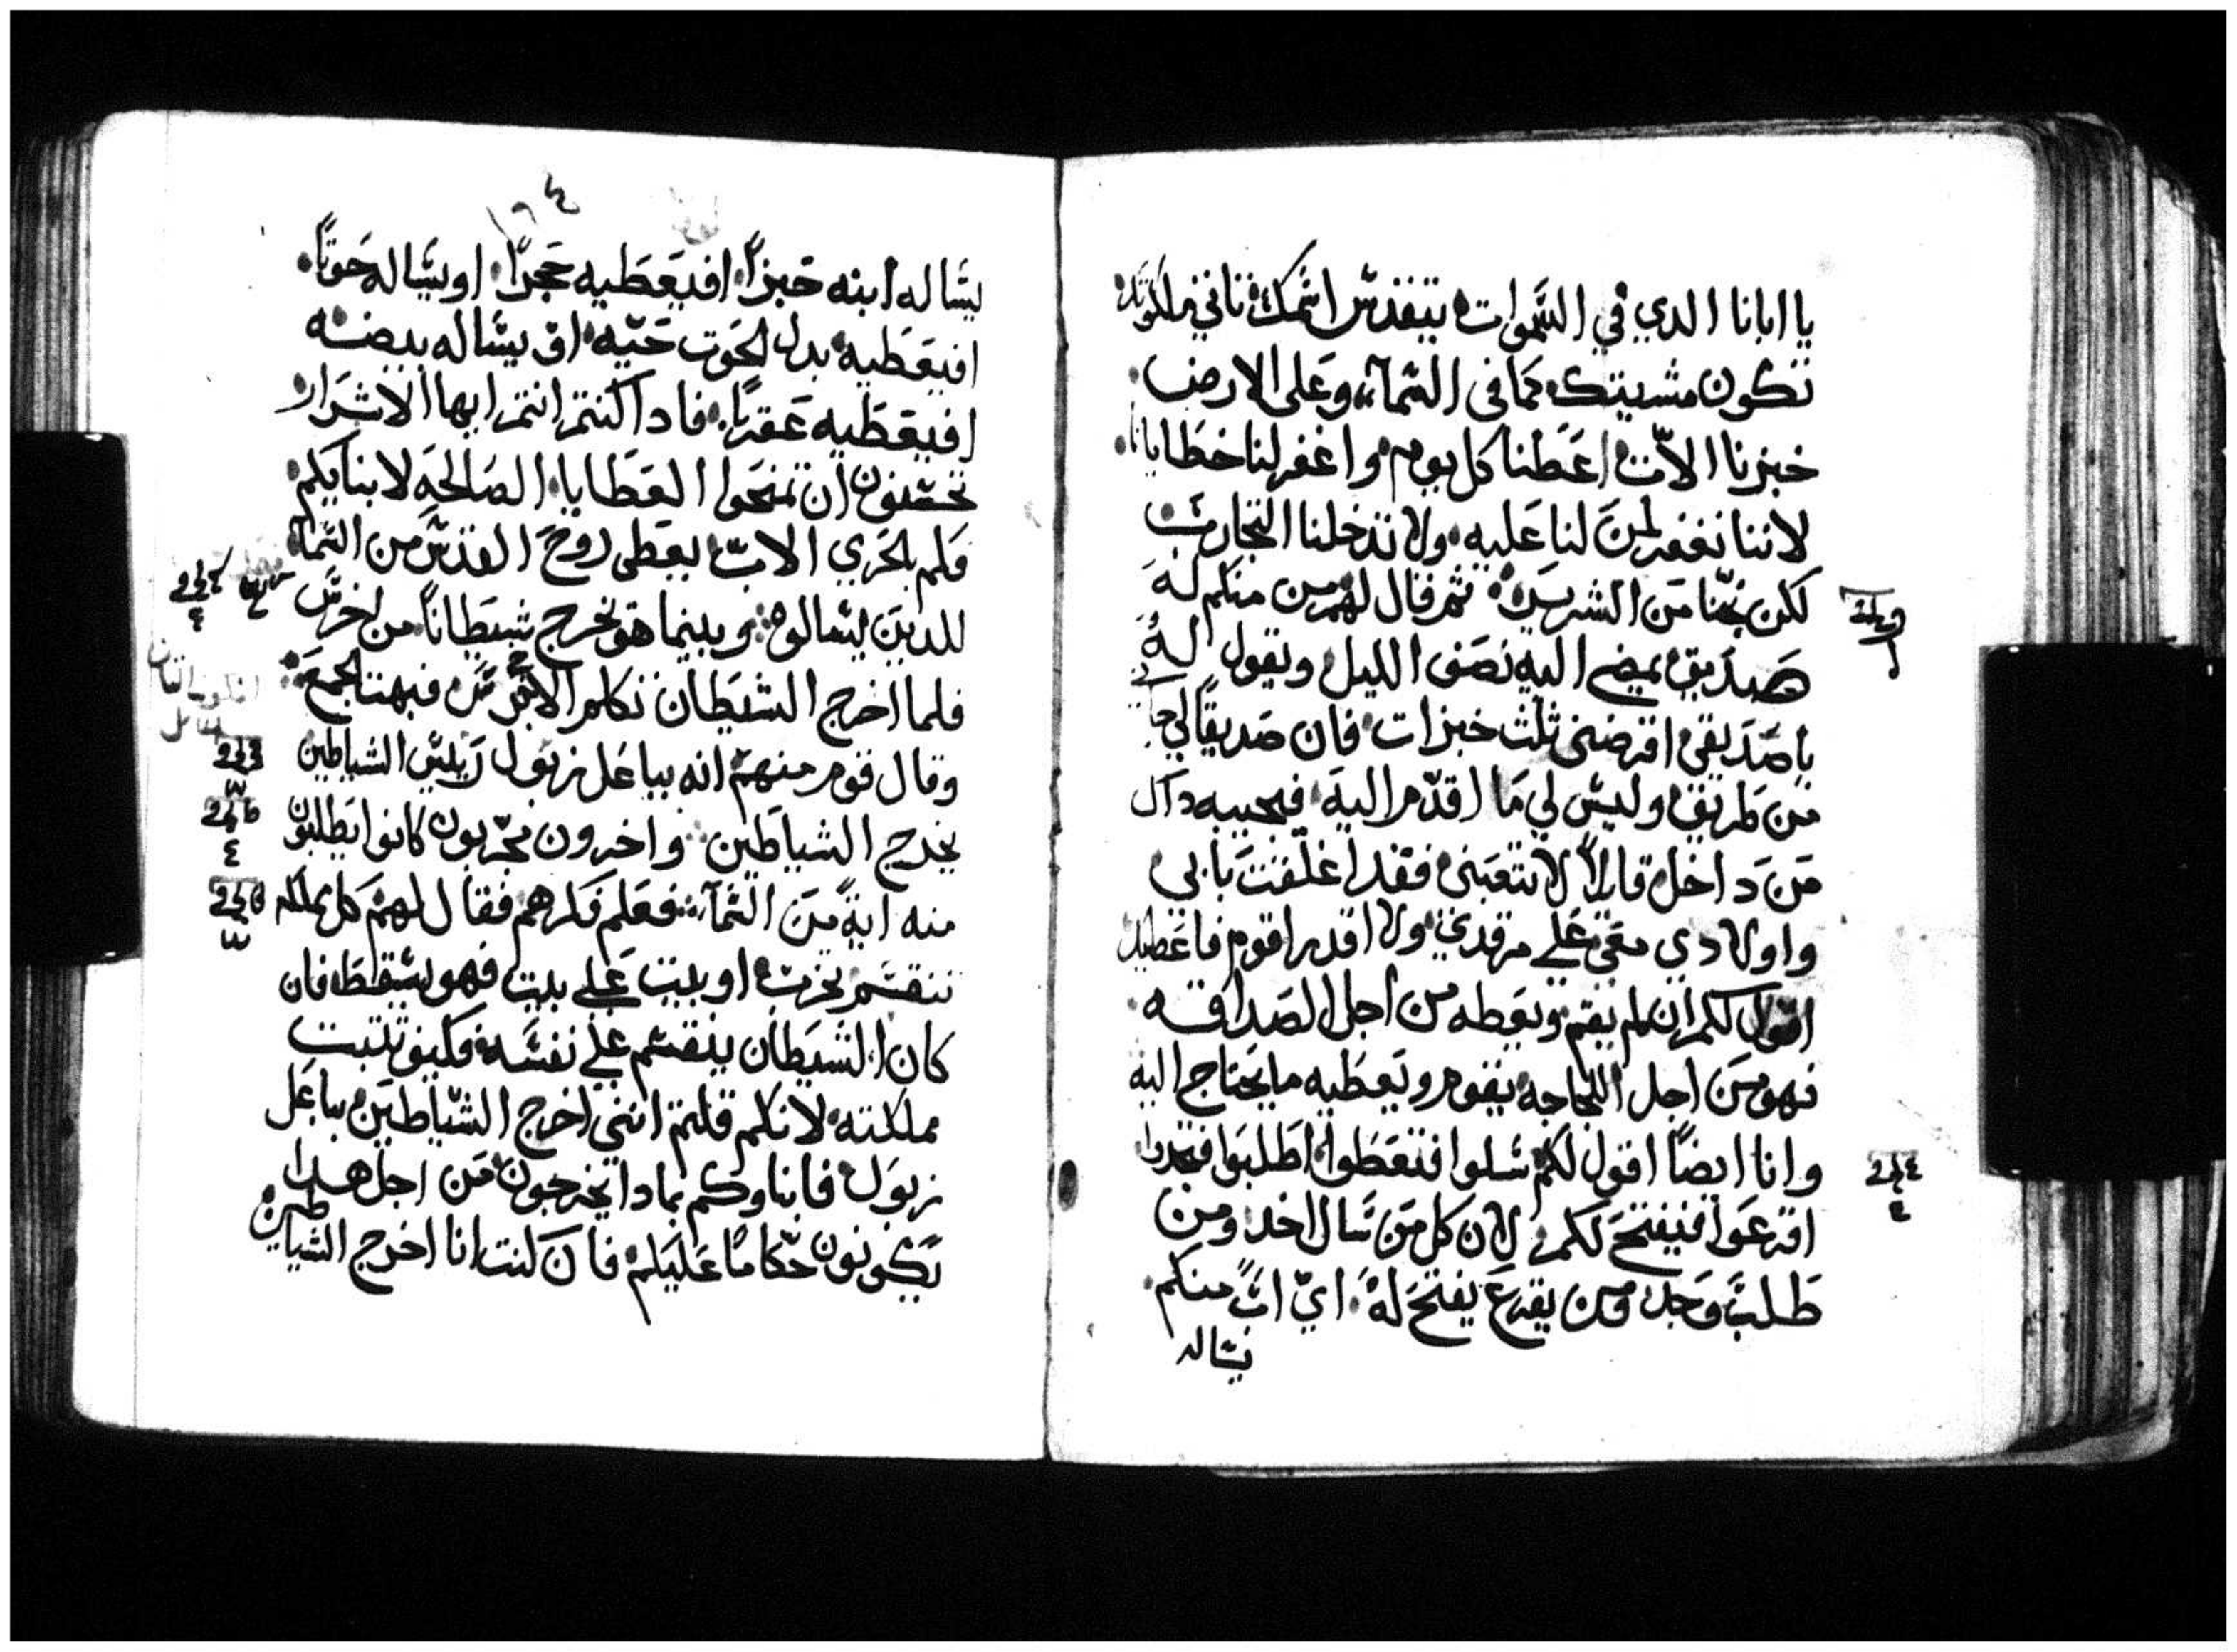 يا ابانا الدي في السموات يتقدس اسمك تاتي ملكوتك
تكون مشيتك كما في السماء وعلى الارض
خبزنا الات اعطنا كل يوم واغفر لنا خطايانا
لاننا نغفر لمن لنا عليه ولا تدخلنا التجارب
لكن نجنا من الشرير ثم قال لهم من منكم له
صديق يمضي اليه نصف الليل ويقول له
يا صديقي اقرضني ثلث خبزات فان صديقا لي جا
من طريق وليس لي ما اقدم اليه فيجيبه داك
من داخل قايلا لا تتعبني فقد اغلقت بابي
واولادي معي علي مرقدي ولا اقدر اقوم فاعطيك
اقول لكم ان لم يقم ويعطه من اجل الصداقه
فهو من اجل اللجاجه يقوم ويعطيه ما يحتاج اليه
وانا ايضا اقول لكم سلوا فتعطوا اطلبوا فتجدوا
اقرعوا فيفتح لكم لان كل من سال اخد ومن
طلب وجد ومن يقرع يفتح له اي اب منكم
يساله
١٦٤
يساله ابنه خبزا افيعطيه حجرا او يساله حوتا
افيعطيه بدل الحوت حيه او يساله بيضه
افيعطيه عقربا فادا كنتم انتم ايها الاشرار
تحسنون ان تمنحوا العطايا الصالحه لابنايكم
فكم بالحري الاب يعطي روح القدس من السماء
للدين يسالوه وبينما هو يخرج شيطانا من اخرس
فلما اخرج الشيطان تكلم الاخرس فبهت الجمع
وقال قوم منهم انه بباعل زبول ريس الشياطين
يخرج الشياطين واخرون مجربون كانوا يطلبون
منه اية من السماء فعلم فكرهم فقال لهم كل مملكه
تنقسم تخرب او بيت علي بيت فهو يسقط فان
كان الشيطان ينقسم علي نفسه فكيف تثبت
مملكته لانكم قلتم انني اخرج الشياطين بباعل
زبول فابناوكم بمادا يخرجون من اجل هدا
يكونون حكاما عليكم فان كنت انا اخرج الشياطين